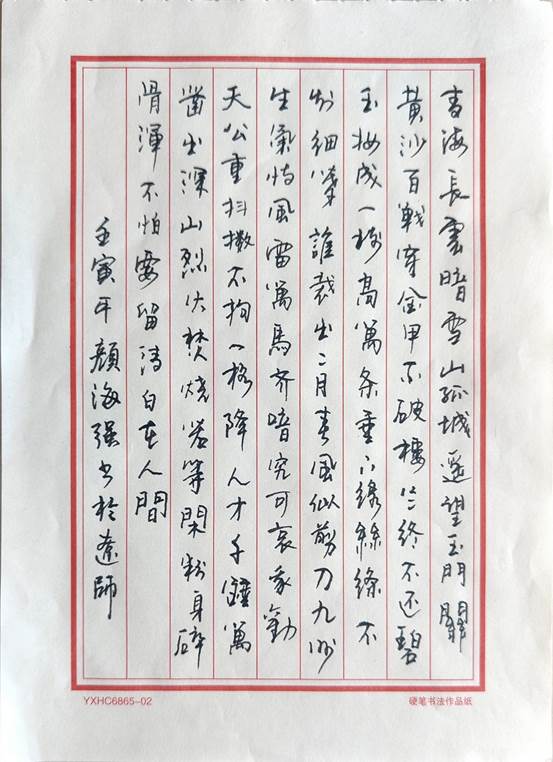 青海長雲暗雪山孤城遥望玉門關
黄沙百戰穿金甲不破樓兰終不还碧
玉妝成一树高萬条垂下绿絲縧不
知细葉誰裁出二月春風似剪刀九州
生氣恃風雷萬馬齐喑究可哀我勸
天公重抖擞不拘一格降人才千錘萬
凿出深山烈火焚烧若等閑粉身碎
骨渾不怕要留清白在人間
壬寅年顏海强书於遼師
YXHC6865-02
硬笔书法作品纸